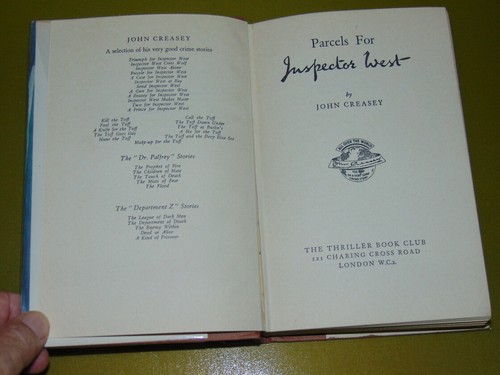 JOHN CREASEY
A selection of his very good crime stories
Triumph for Inspector West
Inspector West Cries Wolf
Inspector West Alone
Puzzle for Inspector West
A Case for Inspector West
Inspector West at Bay
Send Inspector West
A Gun for Inspector West
A Beauty for Inspector West
Inspector West Makes Haste
Two for Inspector West
A Prince for Inspector West
Kill the Toff
Fool the Toff
A Knife for the Toff
The Toff Goes Gay
Hunt the Toff
Call the Toff
The Toff Down Under
The Toff at Butlin's
A Six for the Toff
The Toff and the Deep Blue Sea
Make-up for the Toff
The "Dr. Palfrey" Stories
The Prophet of Fire
The Children of Hate
The Touch of Death
The Mists of Fear
The Flood
The "Department Z" Stories
The League of Dark Men
The Department of Death
The Enemy Within
Dead or Alive
A Kind of Prisoner
Parcels For
Inspector West
by
JOHN CREASEY
THE THRILLER BOOK CLUB
121 CHARING CROSS ROAD
LONDON W.C.2.